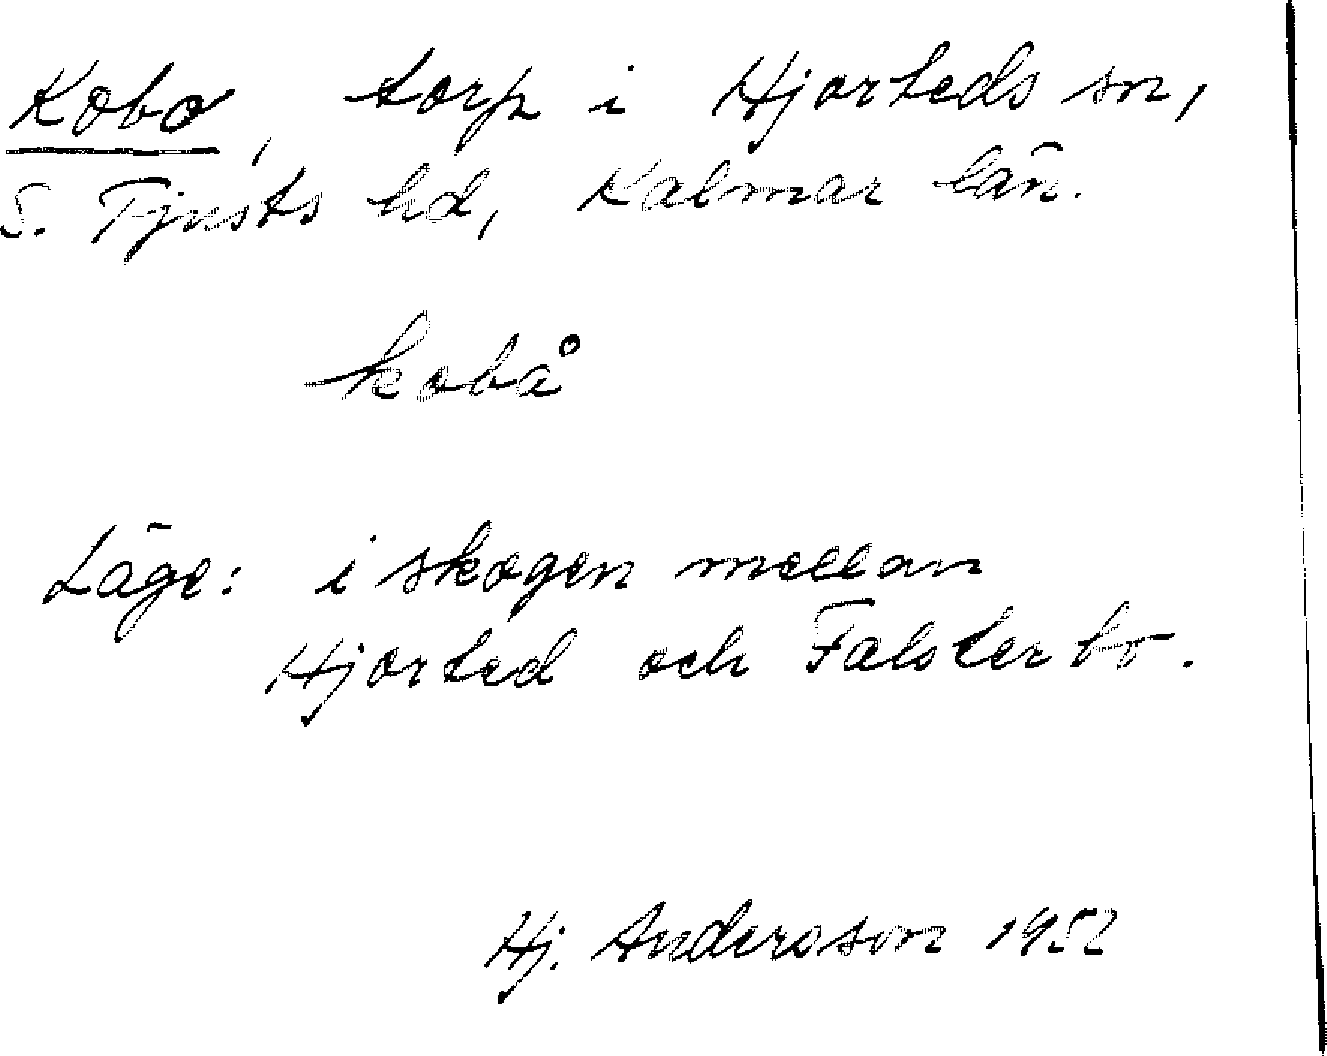 Kobo, torp i Hjorteds sn,
S. Tjusts hd, Kalmar län.
kobå
Läge: i skogen mellan
Hjorted och Falsterbo.
Hj. Andersson 1952